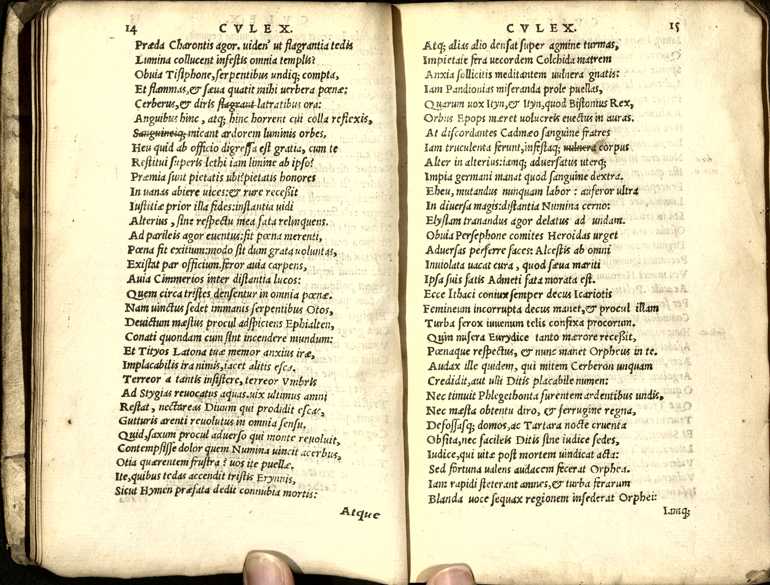 14 CVLEX.
Præda Charontis agor. uiden' ut flagrantia tedis
Lumina collucent infestis omnia templis?
Obuia Tisiphone, serpentibus undiq; compta,
Et flammas, & sæua quatit mihi uerbera pœnæ:
Cerberus, & diris flagrant latratibus ora:
Anguibus hinc, atq; hinc horrent cui colla reflexis,
Sanguineiq; micant ardorem luminis orbes,
Heu quid ab officio digressa est gratia, cum te
Restitui superis lethi iam limine ab ipso?
Præmia sunt pietatis ubi? pietatis honores
In uanas abiere uices: & rure recessit
Iustitiæ prior illa fides: instantia uidi
Alterius, sine respectu mea fata relinquens.
Ad parileis agor euentus: fit pœna merenti,
Pœna fit exitium: modo sit dum grata uoluntas,
Existat par officium. feror auia carpens,
Auia Cimmerios inter distantia lucos:
Quem circa tristes densentur in omnia pœnæ.
Nam uinctus sedet immanis serpentibus Otos,
Deuictum mæstus procul adspiciens Ephialten,
Conati quondam cum sint incendere mundum:
Et Tityos Latona tuæ memor anxius iræ,
Implacabilis ira nimis, iacet alitis esca.
Terreor a tantis insistere, terreor Vmbris
Ad Stygias reuocatus aquas. uix ultimus amni
Restat, nectareas Diuum qui prodidit escas,
Gutturis arenti reuolutus in omnia sensu,
Quid, saxum procul aduerso qui monte reuoluit,
Contempsisse dolor quem Numina uincit acerbus,
Otia quærentem frustra? uos ite puellæ,
Ite, quibus tedas accendit tristis Erynnis,
Sicut Hymen præfata dedit connubia mortis:
Atque
CVLEX. 15
Atq; alias alio densat super agmine turmas,
Impietate fera uecordem Colchida matrem
Anxia sollicitis meditantem uulnera gnatis:
Iam Pandionias miseranda prole puellas,
Quarum uox Ityn, & Ityn, quod Bistonius Rex,
Orbus Epops mæret uolucreis euectus in auras.
At discordantes Cadmæo sanguine fratres
Iam truculenta ferunt, infestaq; uulnera corpus
Alter in alterius: iamq; aduersatus uterq;
Impia germani manat quod sanguine dextra.
Eheu, mutandus nunquam labor: auferor ultra
In diuersa magis: distantia Numina cerno:
Elysiam tranandus agor delatus ad undam.
Obuia Persephone comites Heroidas urget
Aduersas perferre faces: Alcestis ab omni
Inuiolata uacat cura, quod sæua mariti
Ipsa suis fatis Admeti fata morata est.
Ecce Ithaci coniux semper decus Icariotis
Femineum incorrupta decus manet, & procul illam
Turba ferox iuuenum telis confixa procorum.
Quin misera Eurydice tanto mærore recessit,
Pœnaque respectus, & nunc manet Orpheus in te.
Audax ille quidem, qui mitem Cerberon unquam
Credidit, aut ulli Ditis placabile numen:
Nec timuit Phlegethonta furentem ardentibus undis,
Nec mæsta obtentu diro, & ferrugine regna,
Defossasq; domos, ac Tartara nocte cruenta
Obsita, nec facileis Ditis sine iudice sedes,
Iudice, qui uitæ post mortem uindicat acta:
Sed fortuna ualens audacem fecerat Orphea.
Iam rapidi steterant amnes, & turba ferarum
Blanda uoce sequax regionem insederat Orphei:
Iamq;